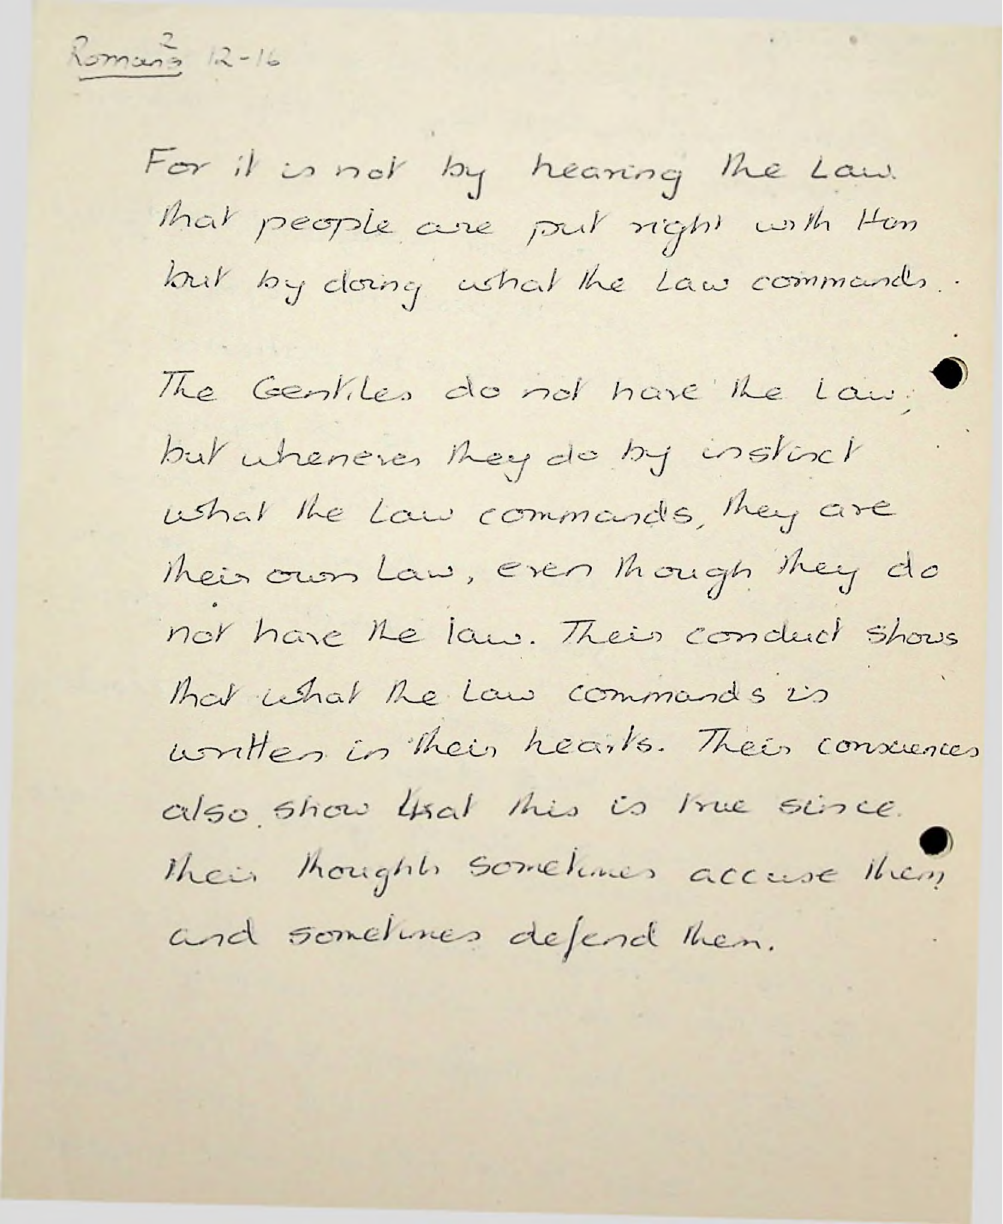 Romans 2 12-16
For it is not by hearing the Law
that people are put right with Him
but by doing what the Law commands.
The Gentiles do not have the Law;
but whenever they do by instinct
what the Law commands, they are
their own Law, even though they do
not have the law. Their conduct shows
that what the Law commands is
written in their hearts. Their consciences
also show that this is true since
their thoughts sometimes accuse them
and sometimes defend them.